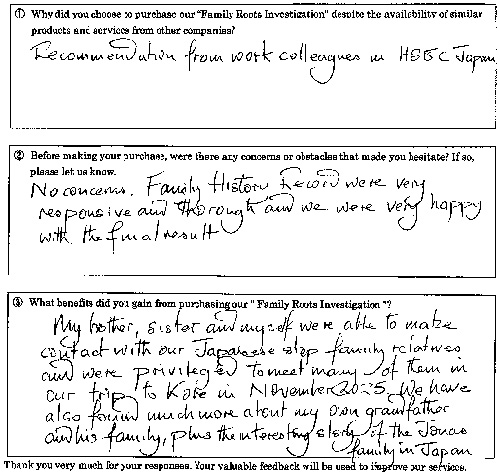 ① Why did you choose to purchase our "Family Roots Investigation" despite the availability of similar
products and services from other companies?
Recommendation from work colleagues in HSBC Japan
② Before making your purchase, were there any concerns or obstacles that made you hesitate? If so,
please let us know.
No concerns. Family History Record were very
responsive and thorough and we were very happy
with the final result
③ What benefits did you gain from purchasing our " Family Roots Investigation "?
My brother, sister and myself were able to make
contact with our Japanese step family relatives
and were privileged to meet many of them in
our trip to Kobe in November 2025. We have
also found much more about my own grandfather
and his family, plus the interesting story of the Jonas
family in Japan
Thank you very much for your responses. Your valuable feedback will be used to improve our services.